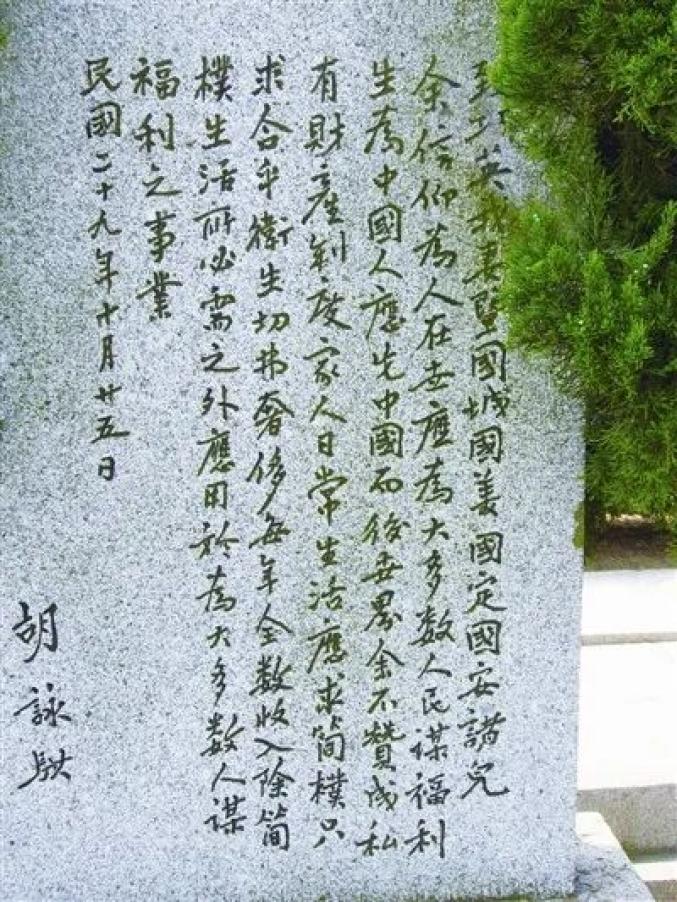 致功英我妻暨國城國姜國定國安諸兒
余信仰為人在世應為大多數人民謀福利
生為中國人應先中國而後世界余不贊成私
有財產制度家人日常生活應求簡樸只
求合乎衛生切弗奢侈每年全數收入除簡
樸生活所必需之外應用於為大多數人謀
福利之事業
民國二十九年十月廿五日
胡詠騏